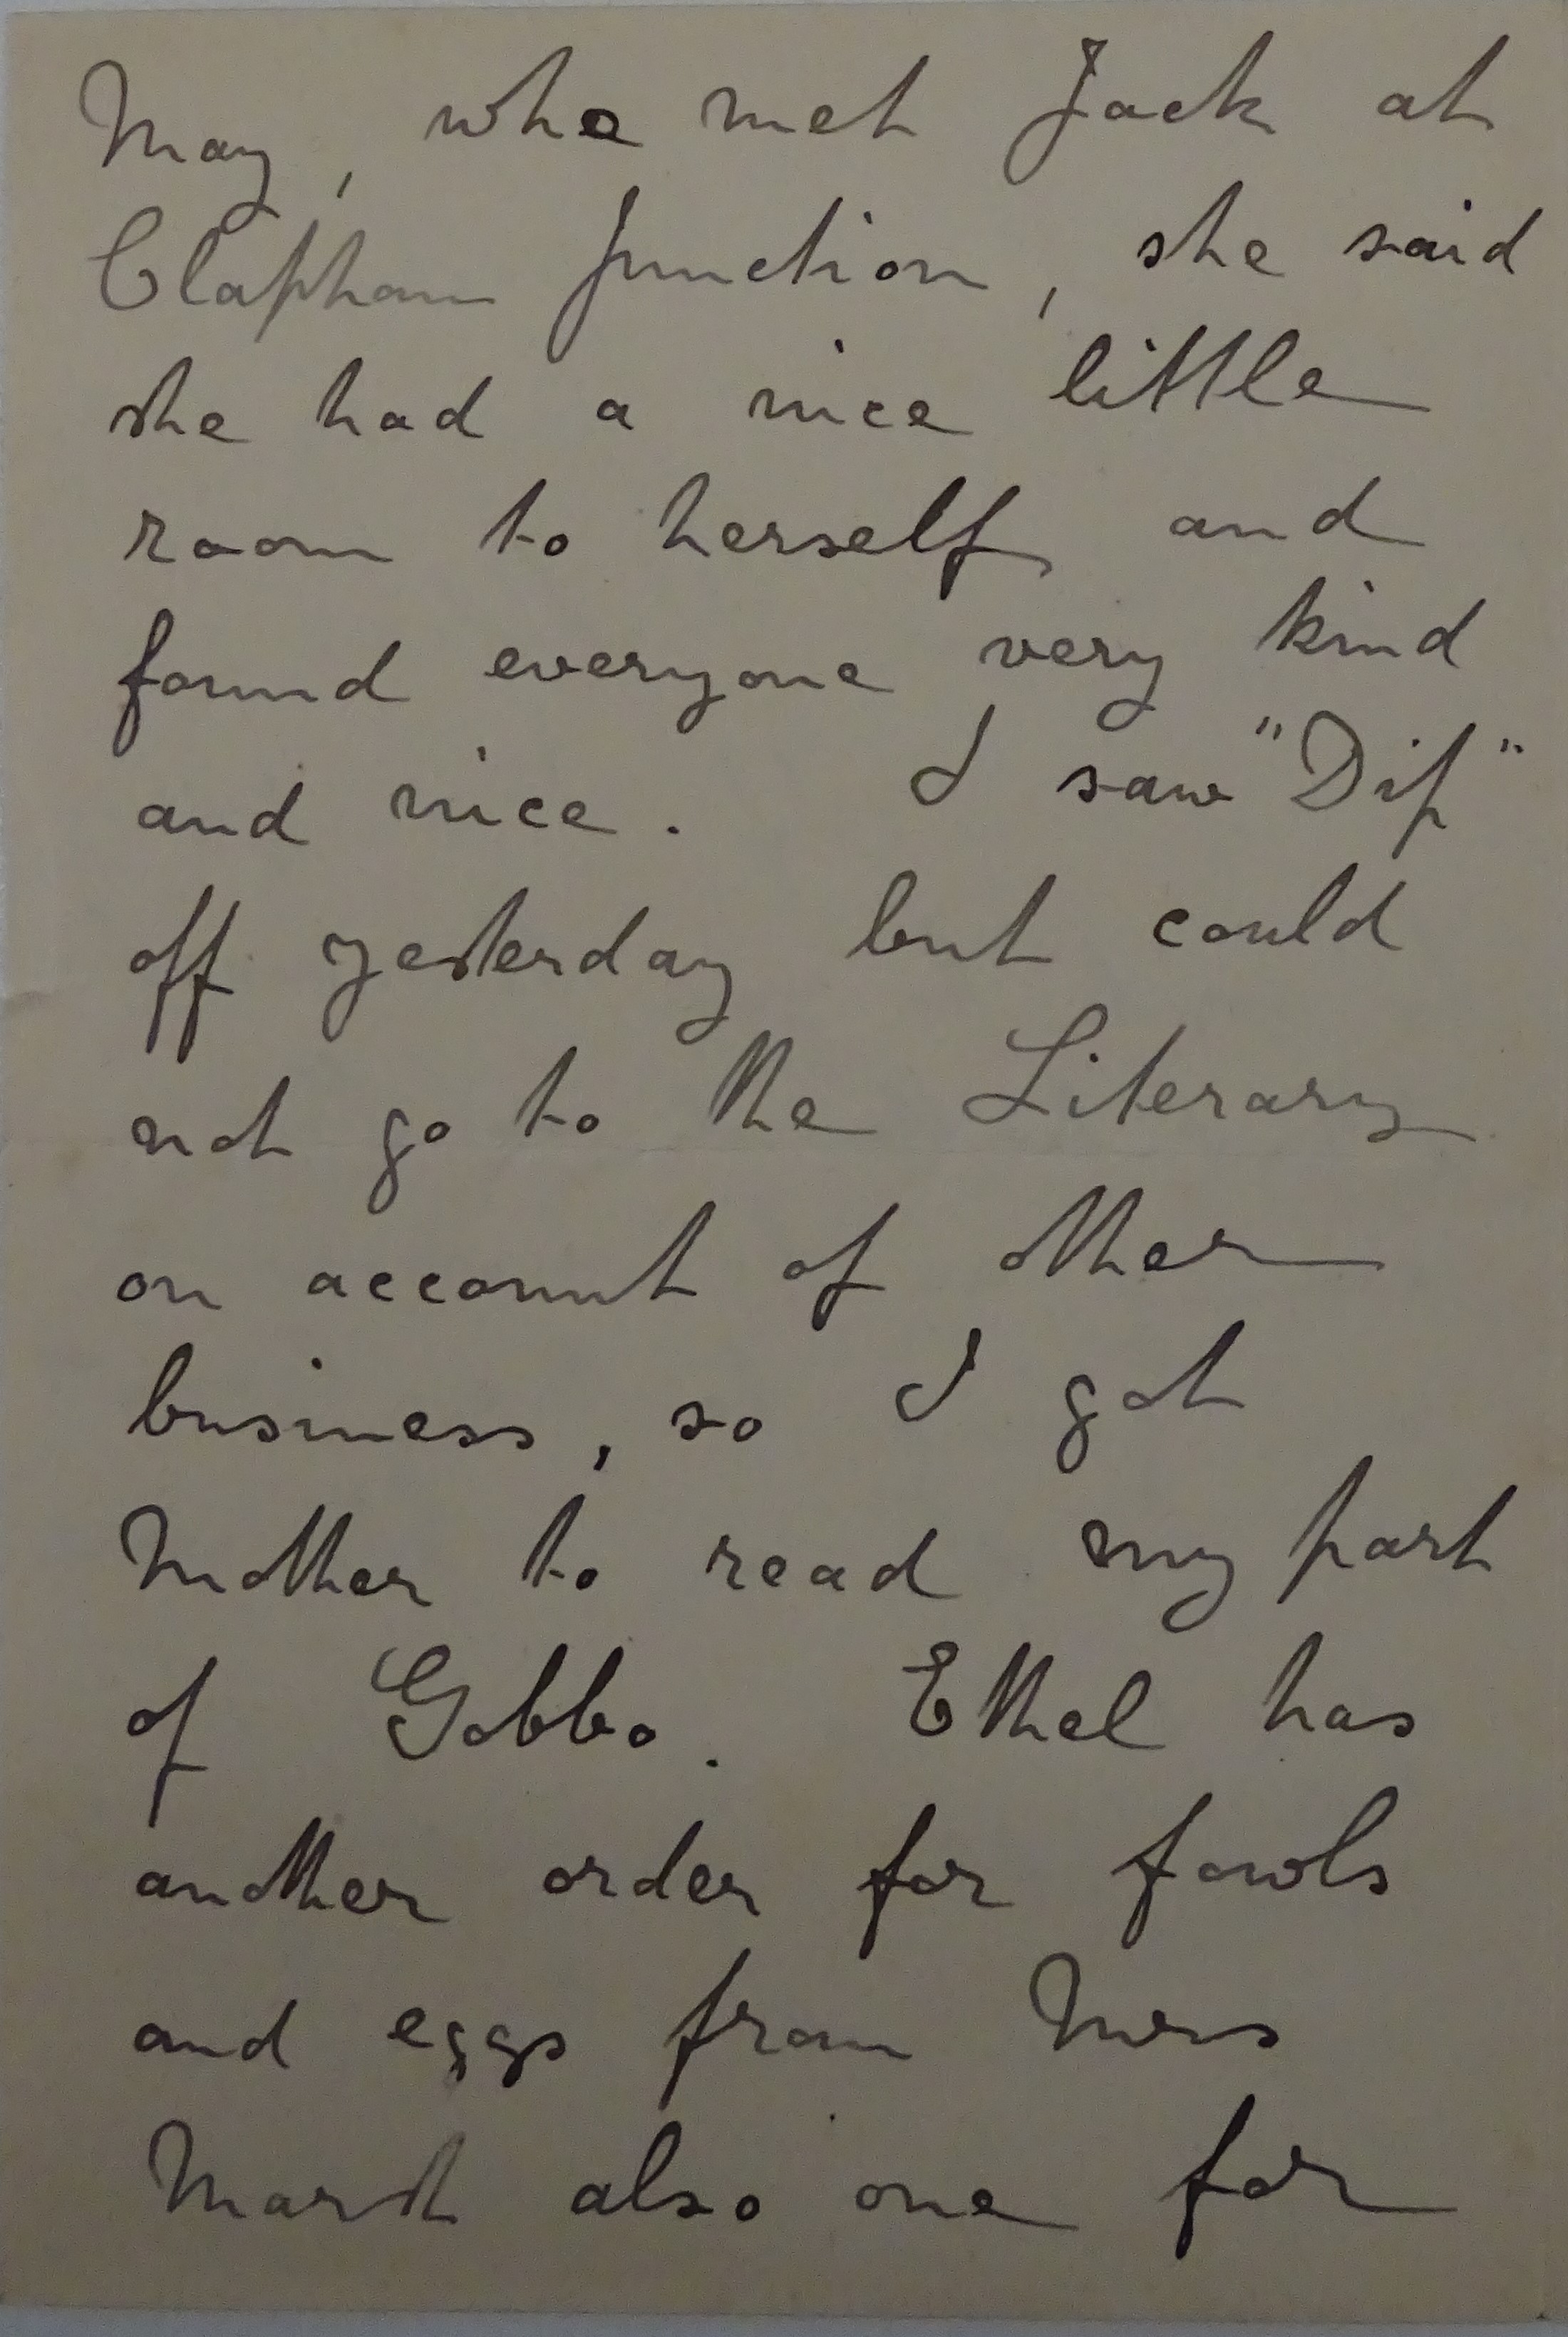 May, who met Jack at
Clapham Junction, she said
she had a nice little
room to herself and
found everyone very kind
and nice. I saw "Dip"
off yesterday but could
not go to the Literary
on account of other
business, so I got
Mother to read my part
of Gobbo. Ethel has
another order for fowls
and eggs from Mrs
Marsh also one for